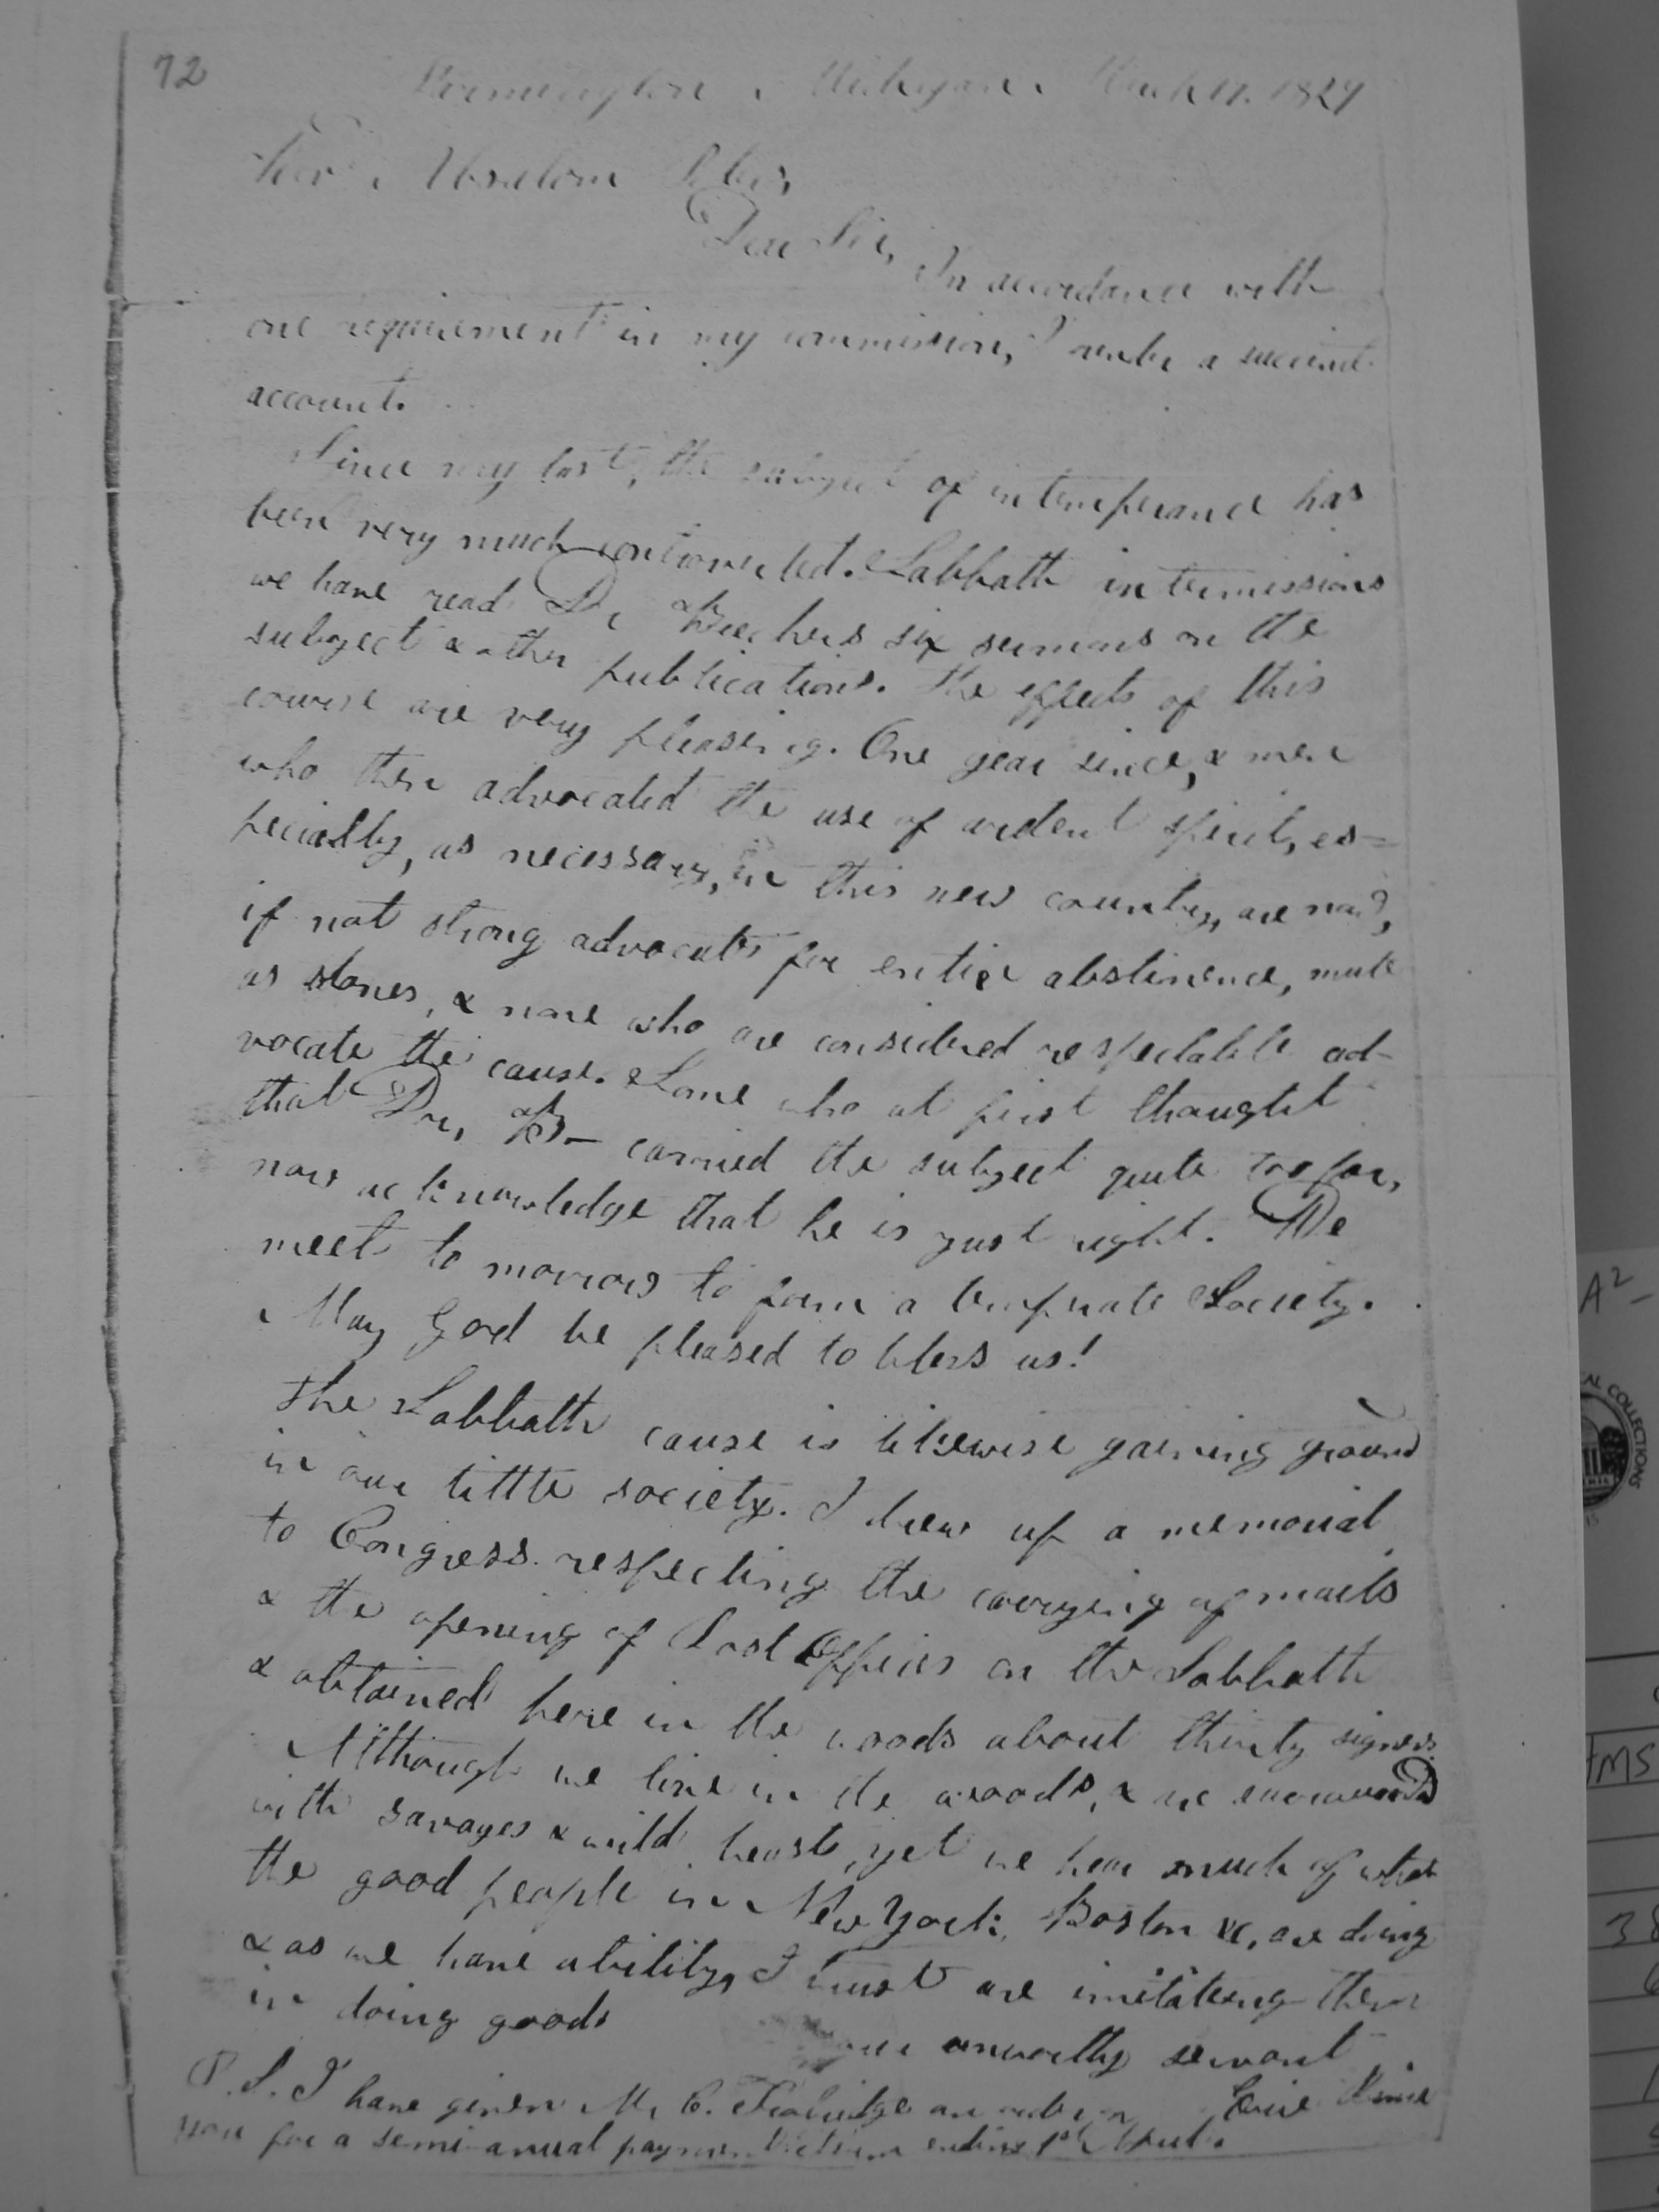 72
Farmington, Michigan, March 17. 1829
Revd. Absalom Peters
Dear Sir, In accordance with
one requirement in my commission, I render a succinct
account.
Since my last, the subject of intemperance has
been very much controverted. Sabbath intermissions
we have read Dr Beechers six sermons on the
subject & other publications. The effects of this
course are very pleasing. One year since, & men
who then advocated the use of ardent spirit, es=
pecially, as necessary, in this new country, are now,
if not strong advocates for entire abstinence, mute
as stones, & none who are considered respectable ad-
vocate the cause. Some who at first thought
that Dr, B- carried the subject quite too far,
now acknowledge that he is just right. We
meet to morrow to form a temperate Society.
May God be pleased to bless us!
The Sabbath cause is likewise gaining ground
in our little society. I drew up a memorial
to Congress respecting the carrying of mails
& the opening of Post Offices on the Sabbath
& obtained here in the woods about thirty signers
Although we live in the woods, & are surrounded
with savages & wild beasts, yet we hear much of what
the good people in New York, Boston &c, are doing
& as we have ability, I trust are imitating them
in doing good.
your unworthy servant
P.S. I have given Mr C. an order on
you for a semi-anual payment ending 1st April.
A2-
AL COLLECTIONS
FMS
38